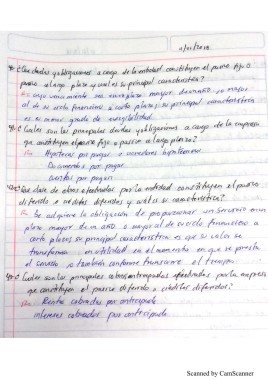 11/01/2018
40. ¿Que deudas y obligaciones a cargo de la entidad constituyen el pasivo fijo o
pasivo a largo plazo y cual es su principal caracteristica?
R= cuyo vencimiento sea en un plazo mayor de un año, o mayor
al de su ciclo financiero a corto plazo; su principal caracteristica
es su menor grado de exigibilidad.
41. ¿Cuales son las principales deudas y obligaciones a cargo de la empresa
que constituyen el pasivo fijo o pasivo a largo plazo?
R= Hipotecas por pagar o acreedores hipotecarios
Documentos por pagar
Cuentas por pagar
42. ¿Que clase de cobros efectuados por la entidad constituyen el pasivo
diferido o creditos diferidos y cual es su caracteristica?
R= Se adquiere la obligacion de proporcionar un servicio en un
plazo mayor de un año o mayor al de su ciclo financiero a
corto plazo; su principal caracteristica es que su valor se
transforma en utilidad en el momento en que se presta
el servicio o tambien conforme transcurre el tiempo.
¿Cuales son los principales cobros anticipados efectuados por la empresa
que constituyen el pasivo diferido o creditos diferidos?
R= Rentas cobradas por anticipado
intereses cobrados por anticipado
Scanned by CamScanner